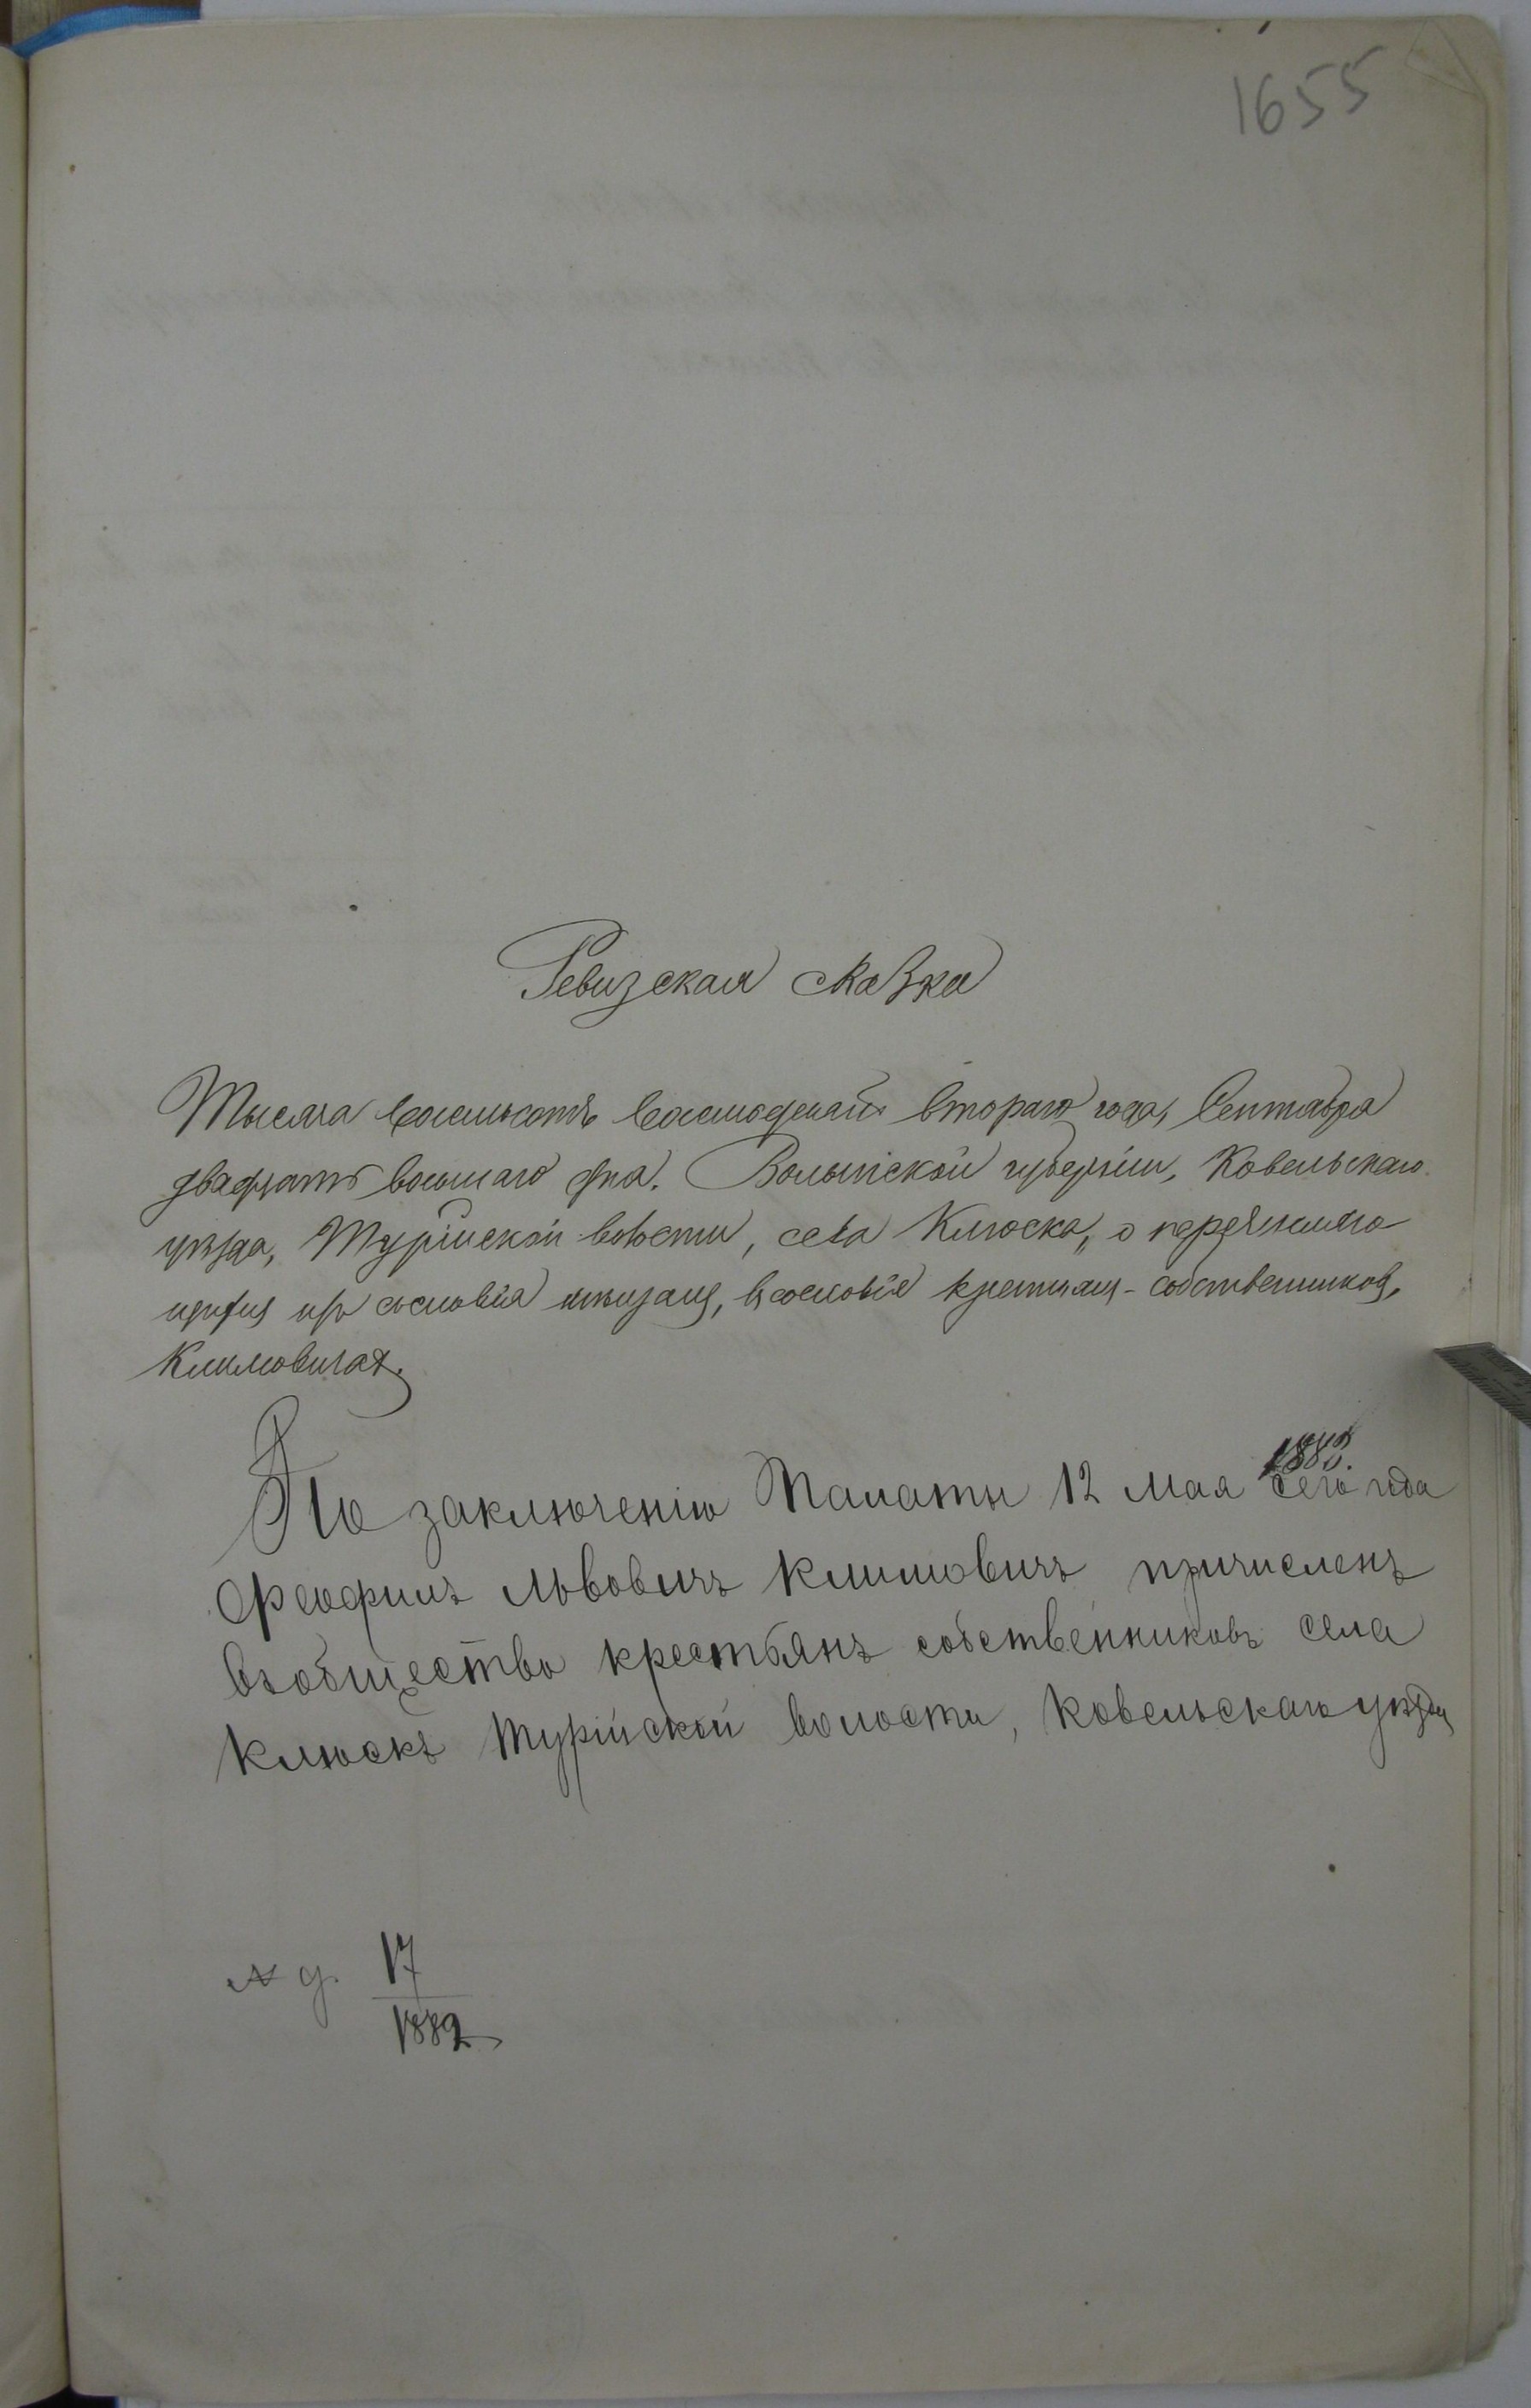 1655
Ревизская сказка
Тысяча восемьсотъ восемьдесятъ втораго года, Сентября
двадцать восьмаго дня. Волынской губерніи, Ковельскаго
уѣзда, Турійской волости, села Клюска, о
изъ сословія, въ сословіе крестьянъ-собственниковъ,
Климовичах.
1883.
По заключенію Палаты 12 Мая сего года
Феофилъ Львовичъ Климовичъ причисленъ
въ общество крестьянъ собственниковъ села
Клюскъ Турійской волости, Ковельскаго уѣзда
№ д. 17
1882